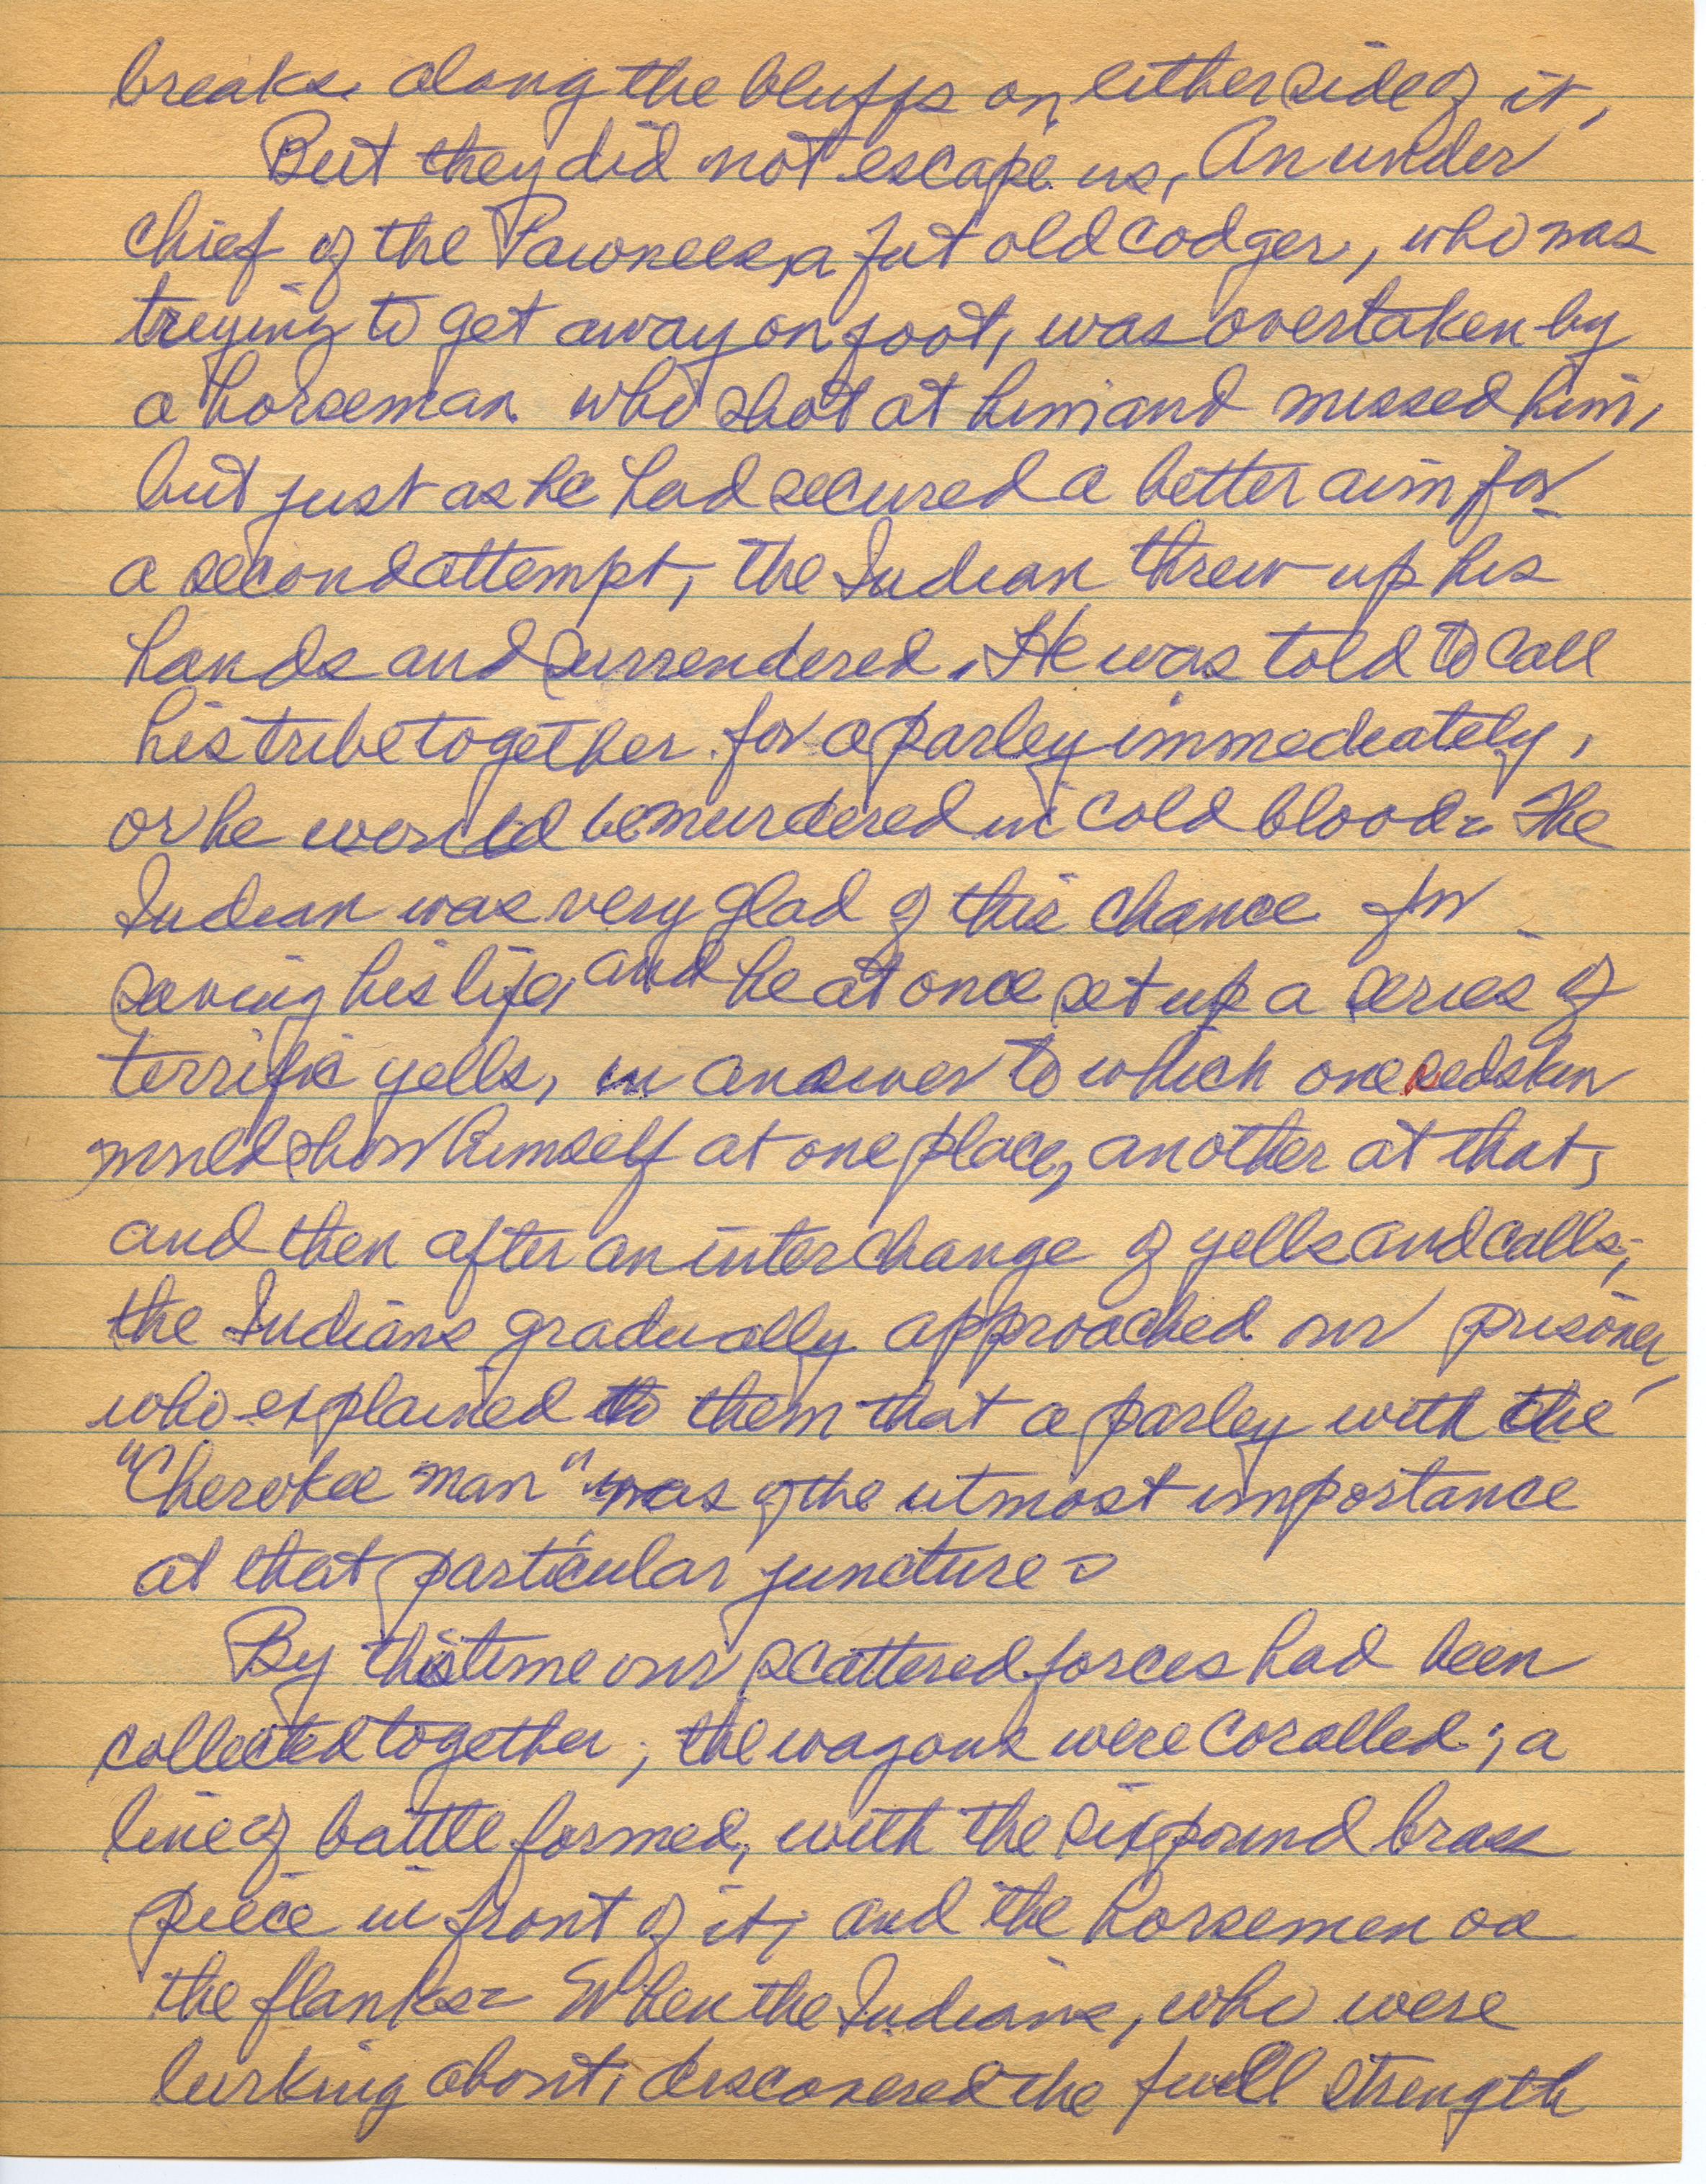 breaks along the bluffs on either side of it.
But they did not escape us. An under
chief of the Pawnees, a fat old codger, who was
treying to get away on foot, was overtaken by
a horseman who shot at him and missed him,
but just as he had secured a better aim for
a second attempt, the Indian threw up his
hands and surrendered. He was told to call
his tribe together for a parley immediately,
or he would be murdered in cold blood. The
Indian was very glad of this chance for
saving his life, and he at once set up a series of
terrific yells, in answer to which one redskin
would show himself at one place, another at that,
and then after an interchange of yells and calls,
the Indians gradually approached our prisoner,
who explained to them that a parley with the
"Cherokee man" was of the utmost importance
at that particular juncture.
By this time our scattered forces had been
collected together; the wagons were coralled; a
line of battle formed, with the six pound brass
piece in front of it, and the horsemen on
the flanks. When the Indians, who were
lurking about, discovered the full strength